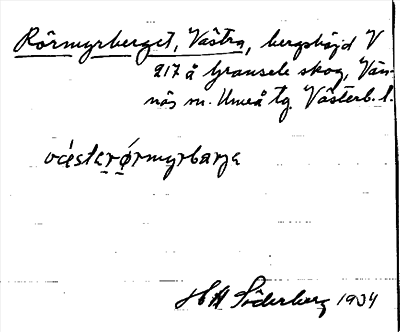 Rörmyrberget, Västra, bergshöjd V
217 å Gransele skog, Vän-
näs sn. Umeå tg. Västerb. l.
västạrø̣rmyrbarja
H A Söderberg 1934